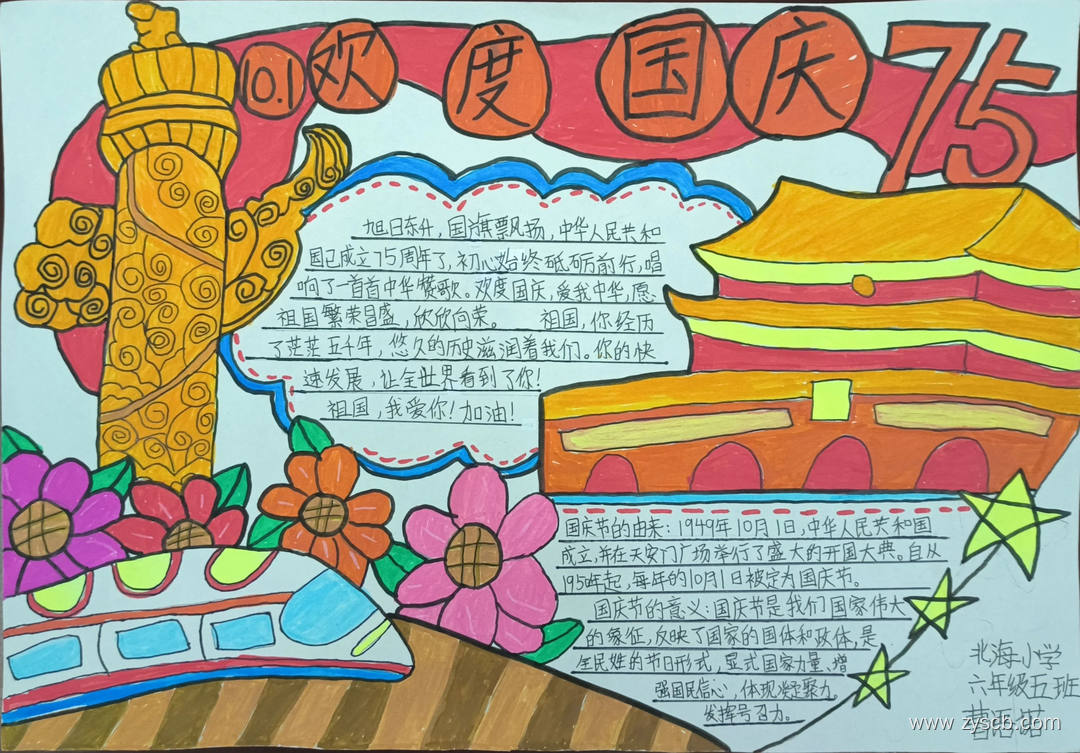 10.1 欢度国庆 75
旭日东升，国旗飘扬，中华人民共和
国已成立75周年了，初心始终砥砺前行，唱
响了一首首中华赞歌。欢度国庆，爱我中华，愿
祖国繁荣昌盛，欣欣向荣。 祖国，你经历
了茫茫五千年，悠久的历史滋润着我们。你的快
速发展，让全世界看到了你！
祖国，我爱你！加油！
国庆节的由来：1949年10月1日，中华人民共和国
成立，并在天安门广场举行了盛大的开国大典。自从
1950年起，每年的10月1日被定为国庆节。
国庆节的意义：国庆节是我们国家伟大
的象征，反映了国家的国体和政体，是
全民姓的节日形式，显式国家力量，增
强国民信心，体现凝聚力。
发挥号召力。
北海小学
六年级五班
www.zyscb.com